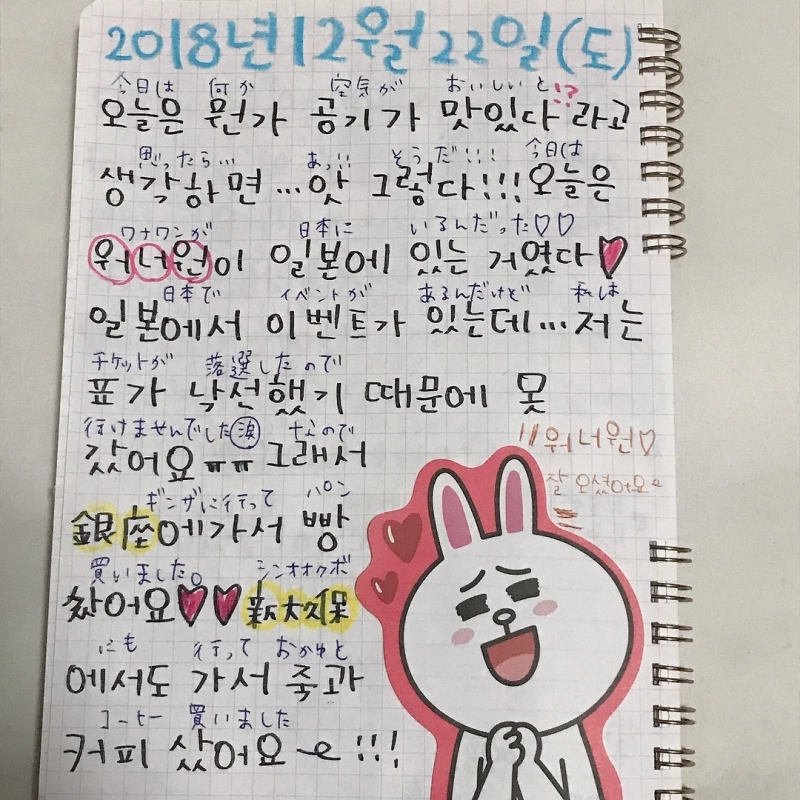 2018년 12월 22일(토)
今日は 何か 空気が おいしいと!?
오늘은 뭔가 공기가 맛있다 라고
思ったら… あっ!! そうだ!!! 今日は
생각하면…앗 그렇다!!!오늘은
ワナワンが 日本に いるんだった♡♡
워너원이 일본에 있는 거였다♥
日本で イベントが あるんだけど 私は
일본에서 이벤트가 있는데…저는
チケットが 落選したので
표가 낙선했기 때문에 못
行けませんでした涙 なので
갔어요ㅠㅠ 그래서
!!워너원♡
잘 오셨어요~
ギンザに行って パン
銀座에가서 빵
買いました。 シンオオクボ
샀어요♥♥新大久保
にも 行って おかゆと
에서도 가서 죽과
コーヒー 買いました
커피 샀어요~!!!